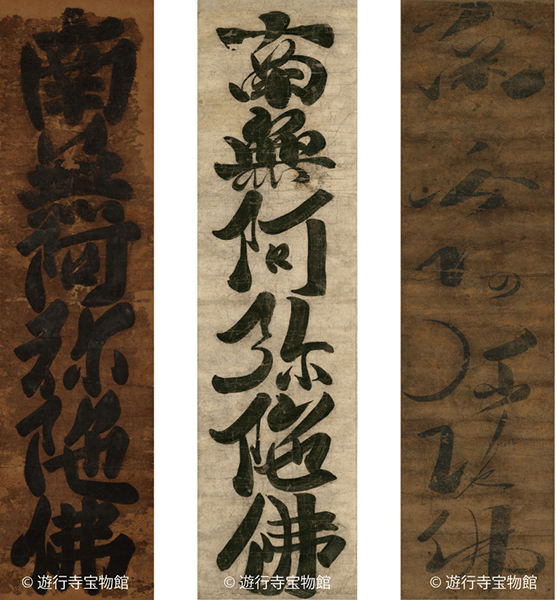 南無阿弥陀佛
© 遊行寺宝物館
南無阿弥陀佛
© 遊行寺宝物館
南無阿弥陀佛
© 遊行寺宝物館